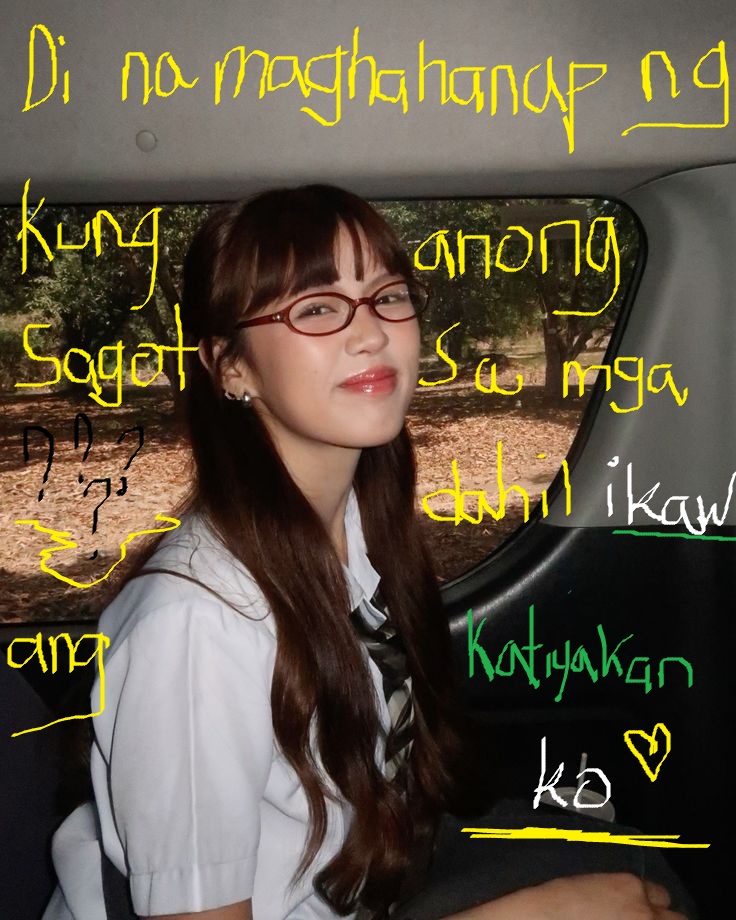 Di na maghahanap ng
Kung anong
Sagot sa mga
????
dahil ikaw
ang Katiyakan
ko